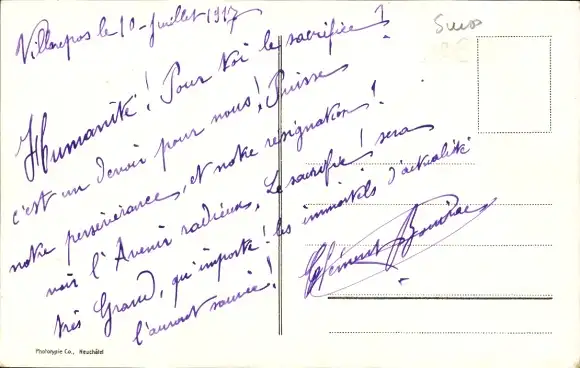 Villarepos le 10 Juillet 1917
Suisse
Humanité! Pour toi le sacrifice?
c'est un devoir pour nous! Puisse
notre persévérance, et notre résignation!
voir l'Avenir radieux. Le sacrifice! sera
très Grand, qu'importe! les immortels d'actualité
l'auront sauvée!
Clément
Phototypie Co., Neuchâtel